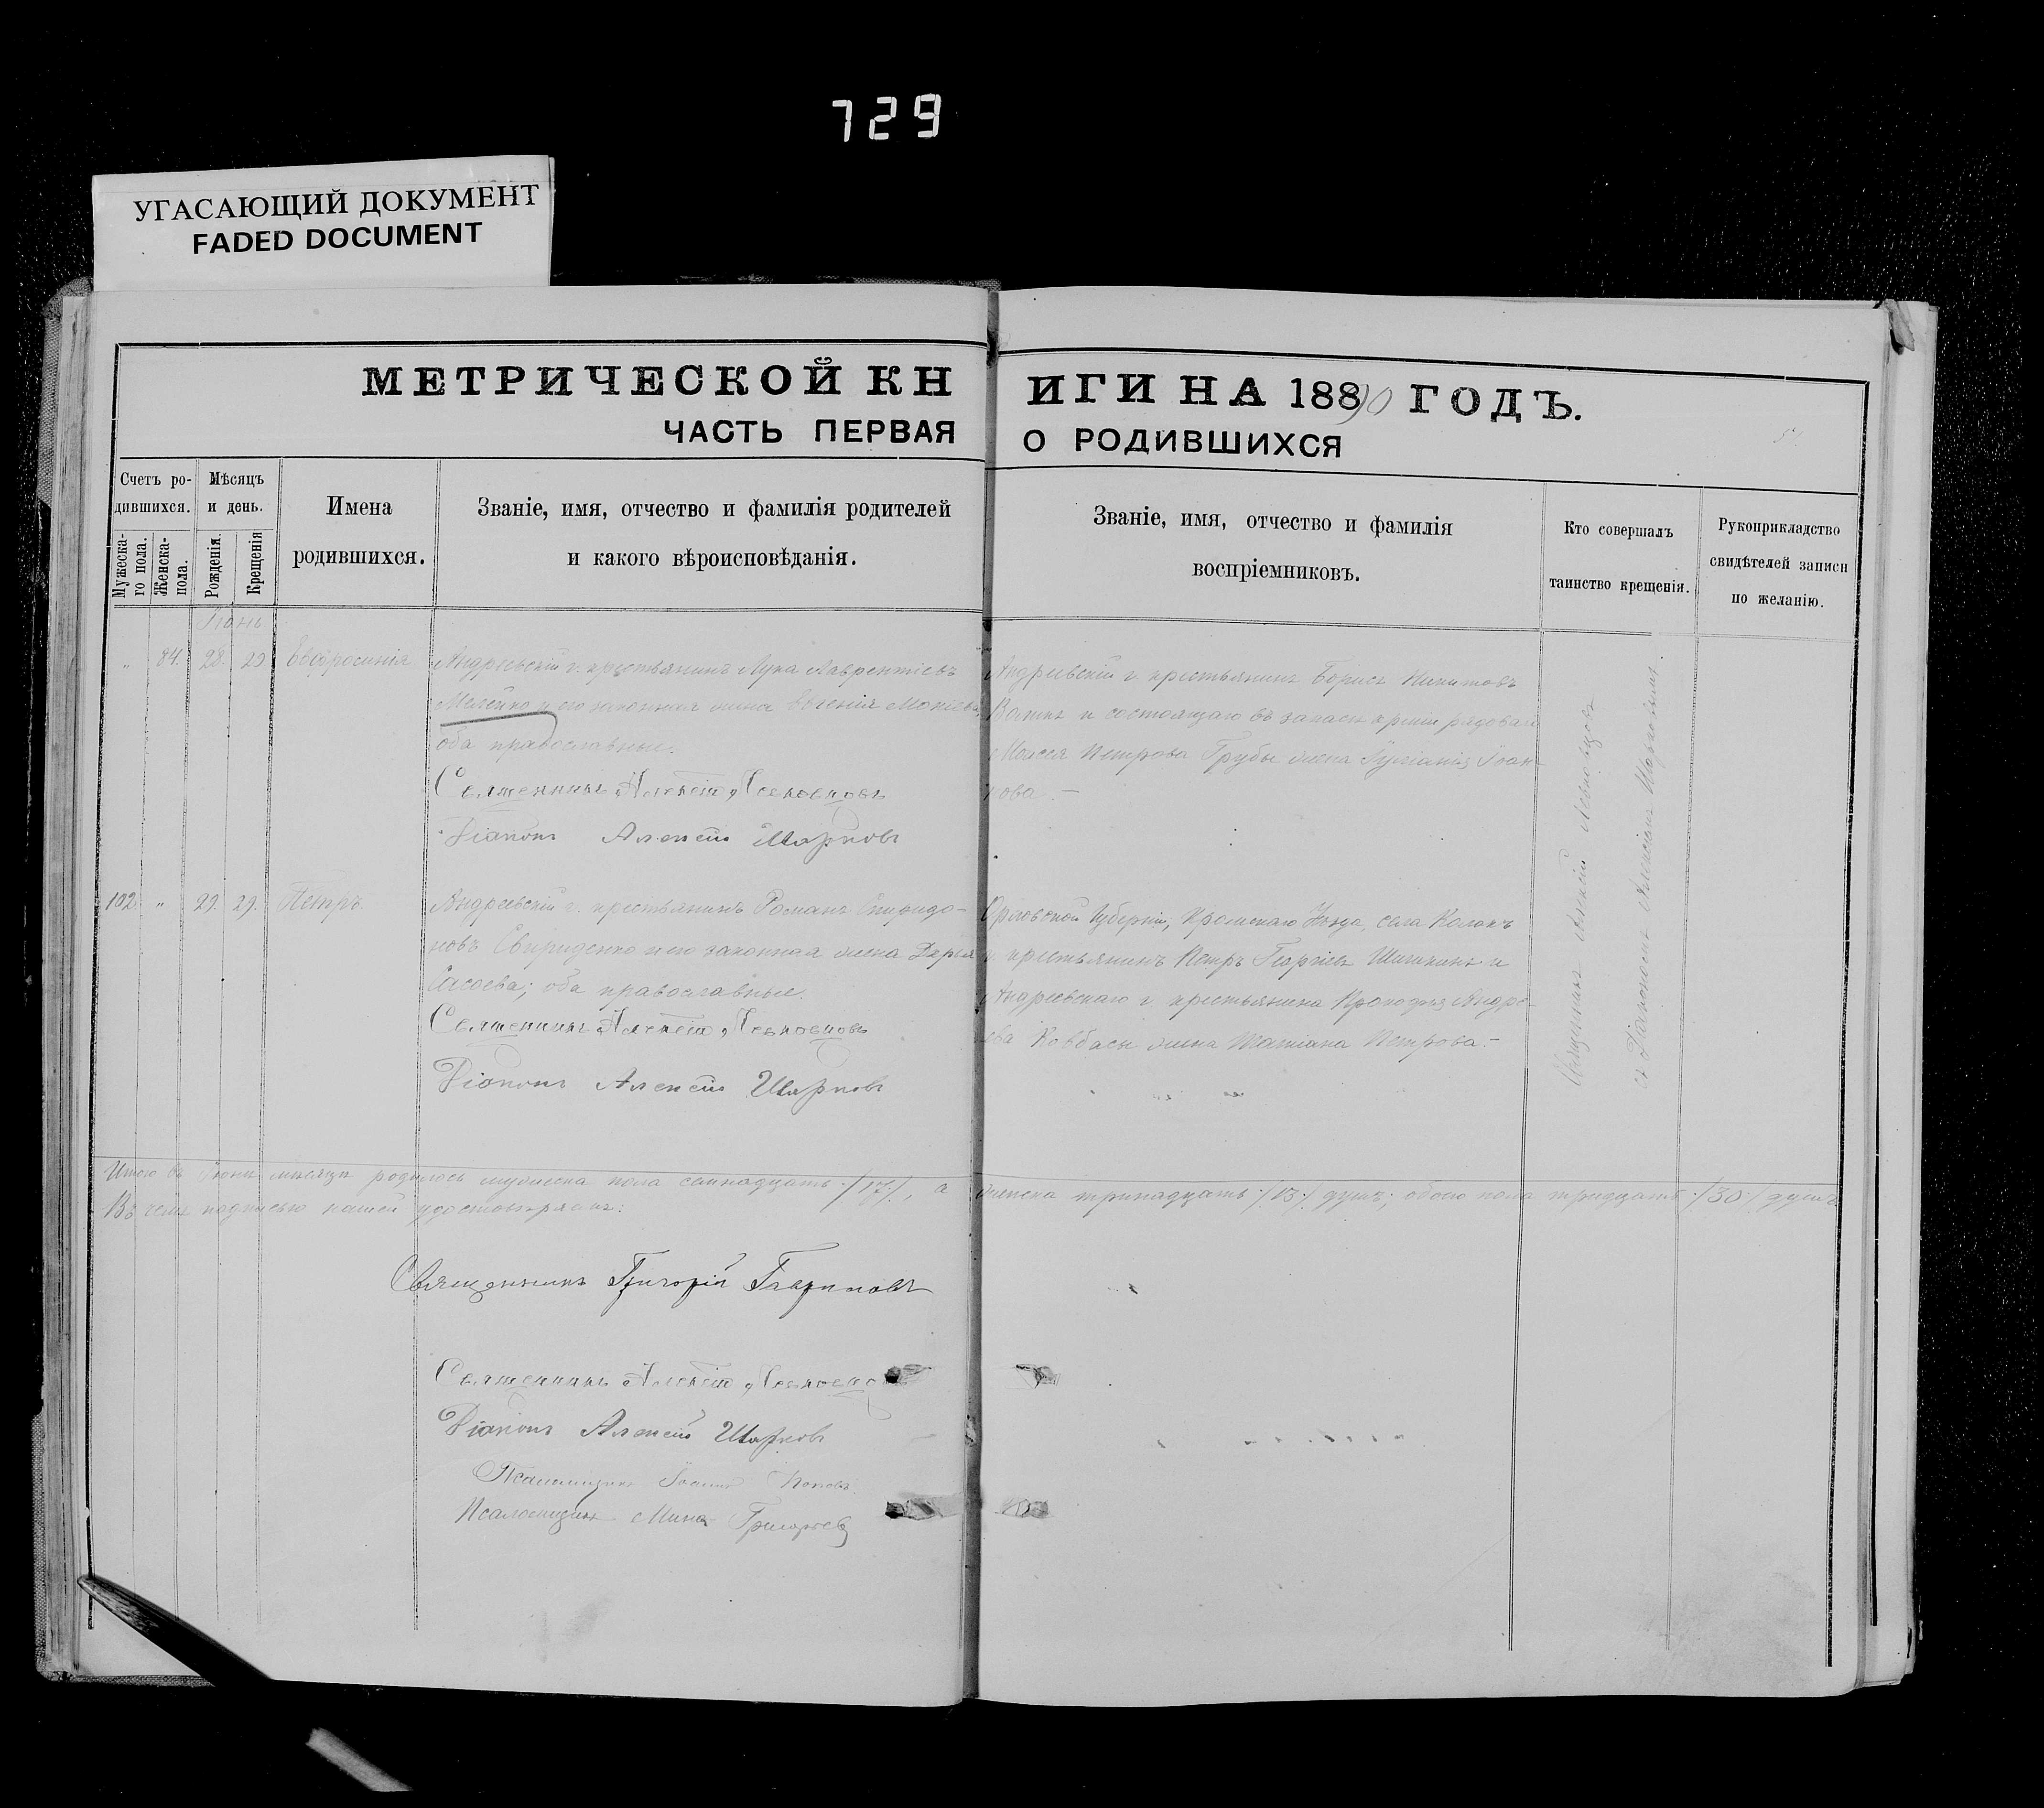 729
УГАСАЮЩИЙ ДОКУМЕНТ
FADED DOCUMENT
МЕТРИЧЕСКОЙ КНИГИ НА 1890 ГОДЪ.
ЧАСТЬ ПЕРВАЯ О РОДИВШИХСЯ
Счетъ родившихся.
Мужескаго пола.
Женска- пола.
Мѣсяцъ и день.
Рожденія.
Крещенія
Имена родившихся.
Званіе, имя, отчество и фамилія родителей
и какого вѣроисповѣданія.
Званіе, имя, отчество и фамилія
воспріемниковъ.
Кто совершалъ
таинство крещенія.
Рукоприкладство
свидѣтелей записи
по желанію.
Іюнь
„ 84. 28. 29. Евфросинія
Андреевскій г. крестьянинъ Лука Лаврентіевъ
и его законная жена Евгенія
оба православные.
Священникъ Алексій Левковцовъ
Діаконъ Алексій Шарковъ
Андреевскій г. крестьянинъ Борисъ Никитовъ
и состоящаго въ запасѣ арміи рядоваго
Моисея Петрова Грубы жена Іуліанія Іоан-
нова. –
102. „ 29. 29. Петръ.
Андреевскій г. крестьянинъ Романъ Спиридо-
новъ Свириденко и его законная жена Дарья
Сысоева; оба православные.
Священникъ Алексій Левковцовъ
Діаконъ Алексій Шарковъ
Орловской губерніи, Кромскаго уѣзда, села
крестьянинъ Петръ Георгіевъ Шишкинъ и
Андреевскаго г. крестьянина Андре-
ева Ковбасы жена Татіана Петрова. –
Священникъ Алексій Левковцовъ
съ Діакономъ Алексіемъ Шарковымъ.
Итого въ Іюнѣ мѣсяцѣ родилось мужеска пола семнадцать /17/, а женска тринадцать /13/ душъ; обоего пола тридцать /30/ душъ.
Въ чемъ подписью нашей удостовѣряемъ:
Священникъ Григорій
Священникъ Алексій Левковцовъ
Діаконъ Алексій Шарковъ
Псаломщикъ Іоаннъ Поповъ.
Псаломщикъ Мина Григорьевъ